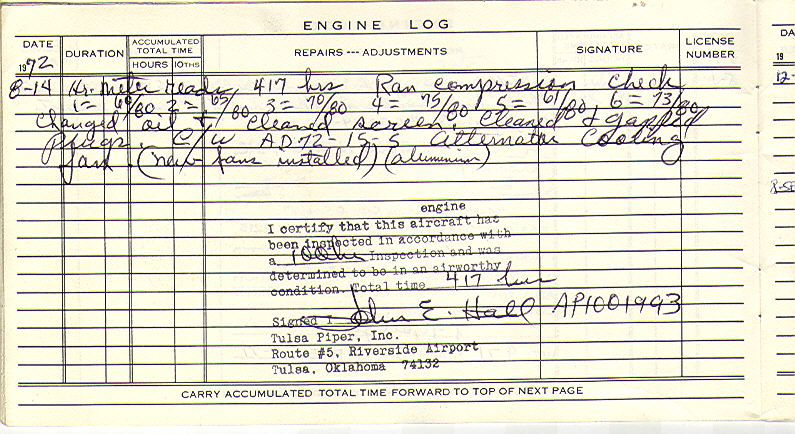 ENGINE LOG
DATE DURATION ACCUMULATED TOTAL TIME REPAIRS --- ADJUSTMENTS SIGNATURE LICENSE NUMBER
1972 HOURS 10THS
8-14 Hr. meter reads 417 hrs Ran compression check
1= 60/80 2= 65/80 3= 70/80 4= 75/80 5= 61/80, 6= 73/80
Changed oil + cleaned screen. Cleaned & gapped
Plugs. C/W AD 72-15-5 Alternator Cooling
fan. (new fans installed) (aluminum)
engine
I certify that this aircraft has
been inspected in accordance with
a 100hr Inspection and was
determined to be in an airworthy
condition. Total time 417 hrs
Signed John E. Hall AP1001993
Tulsa Piper, Inc.
Route #5, Riverside Airport
Tulsa, Oklahoma 74132
CARRY ACCUMULATED TOTAL TIME FORWARD TO TOP OF NEXT PAGE
DA
19
12-